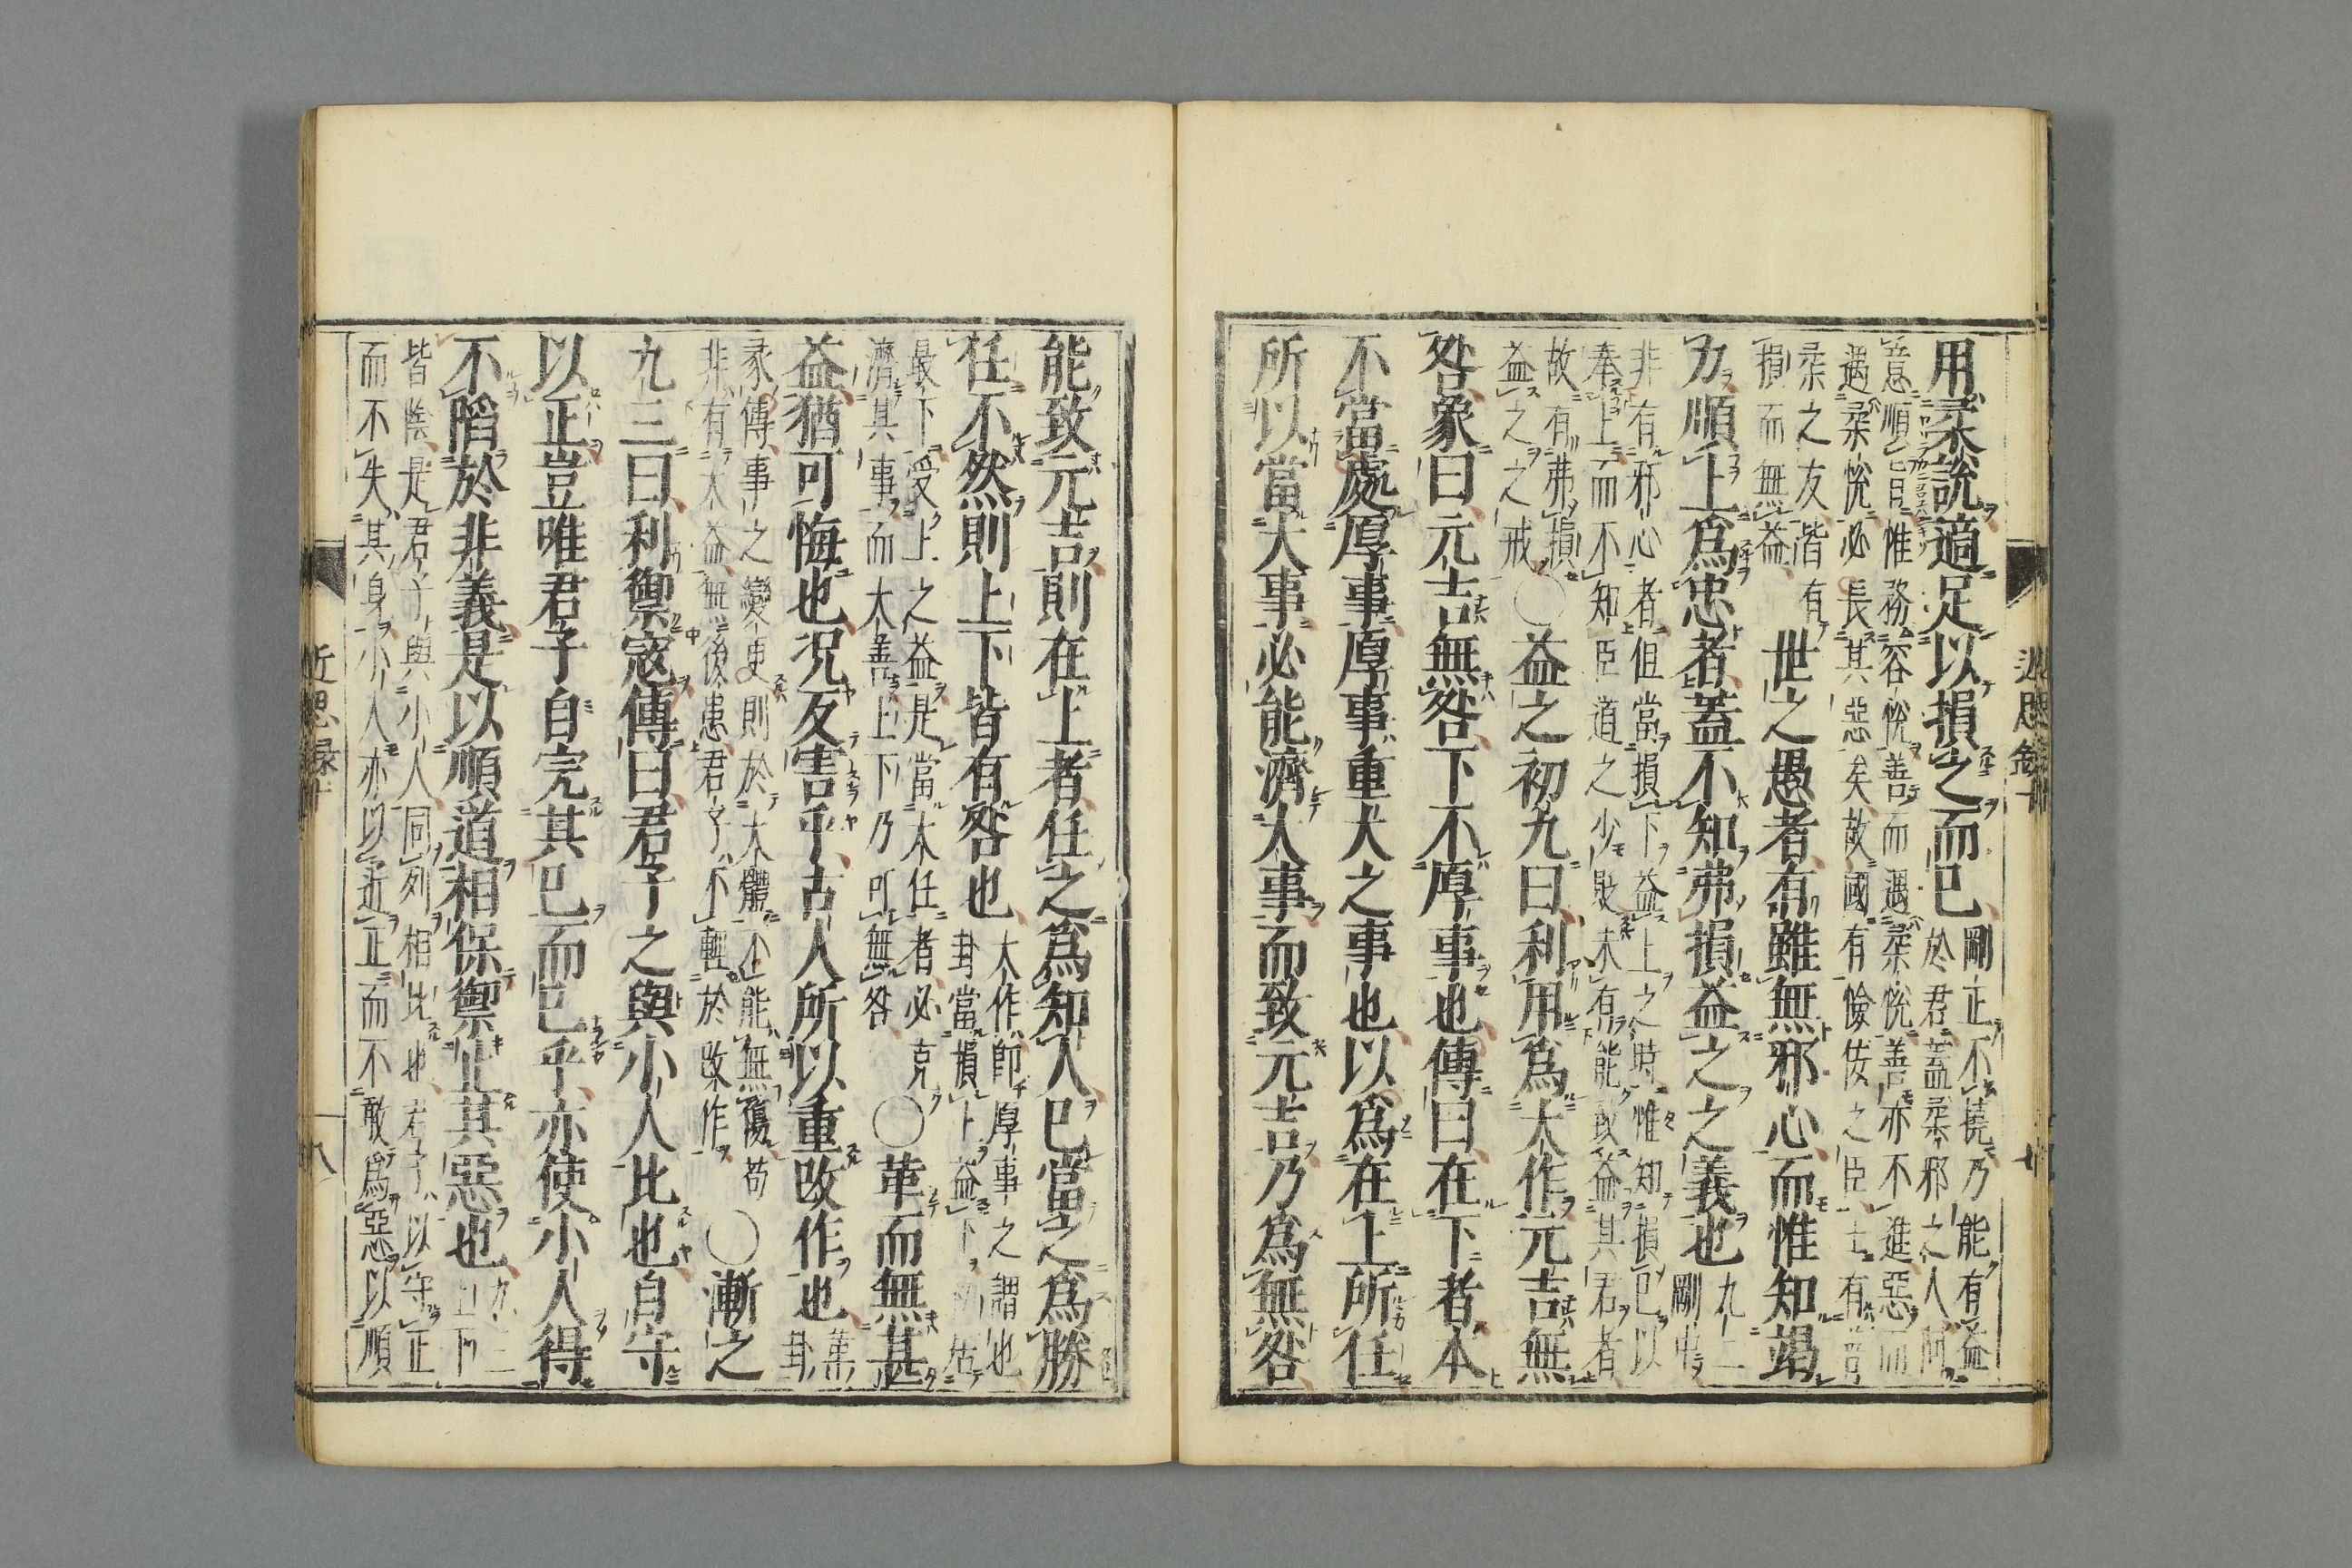 用柔說適足以損之而已剛正不撓乃能有益
於君蓋柔邪之人阿
意順旨惟務容悅善而遇柔悅善亦不進惡而
遇柔悅必長其惡矣故國有憸佞之臣士有
柔之友皆有
損而無益世之愚者有雖無邪心而惟知竭
力順上爲忠者蓋不知弗損益之之義也九二
剛中
非有邪心者但當損下益上之時惟知損已以
奉上而不知臣道之少貶未有能或益其君者
故有弗損
益之之戒○益之初九曰利用爲大作元吉無
咎象曰元吉無咎下不厚事也傳曰在下者本
不當處厚事厚事重大之事也以爲在上所任
所以當大事必能濟大事而致元吉乃爲無咎
能致元吉則在上者任之爲知人已當之爲勝
任不然則上下皆有咎也大作卽厚事之謂也
卦當損上益下
最下受上之益是當大任者必克
濟其事而大善上下乃可無咎○革而無甚
益猶可悔也況反害乎古人所以重改作也革
卦
彖傳事之變更則於大體不能無傷苟
非有大益無後患君子不輕於改作○漸之
九三曰利禦寇傳曰君子之與小人比也自守
以正豈唯君子自完其已而已乎亦使小人得
不陷於非義是以順道相保禦止其惡也九三
上下
皆陰是君子與小人同列相比也君子以守正
而不失其身小人亦以近正而不敢爲惡以順
近思錄十
十八